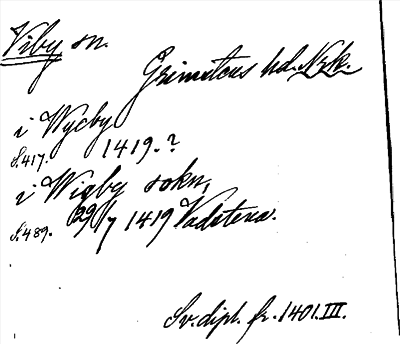 Viby sn.
Grimstens hd. Nrk.
i Wycby
S.417. 1419.?
i Wigby sokn,
S.489. 29/7 1419 Vadstena.
Sv. dipl. fr. 1401. III.